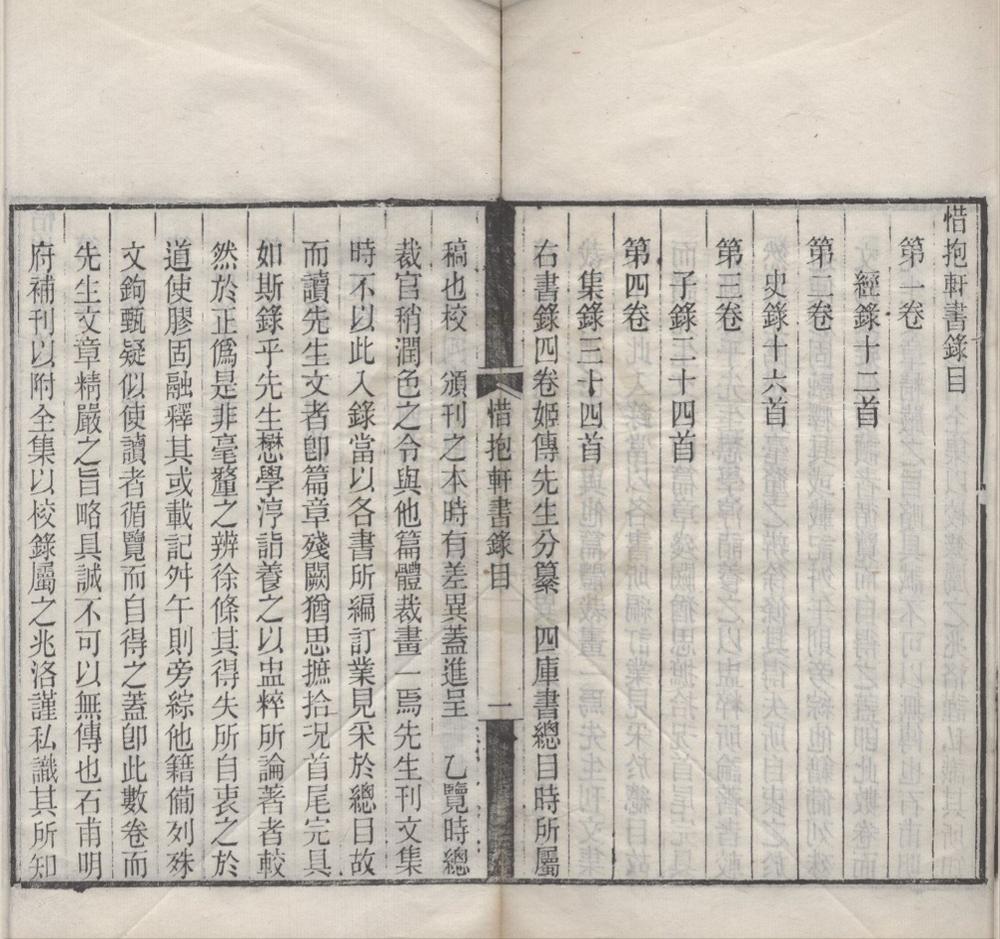 惜抱軒書錄目
第一卷
經錄十二首
第二卷
史錄十六首
第三卷
子錄二十四首
第四卷
集錄三十四首
右書錄四卷姬傳先生分纂　四庫書總目時所屬
惜抱軒書錄目　一
稿也校　頒刊之本時有差異蓋進呈　乙覽時總
裁官稍潤色之令與他篇體裁畫一焉先生刊文集
時不以此入錄當以各書所編訂業見采於總目故
而讀先生文者卽篇章殘闕猶思摭拾况首尾完具
如斯錄乎先生懋學渟詣養之以盅粹所論著者較
然於正僞是非毫釐之辨徐條其得失所自衷之於
道使膠固融釋其或載記舛午則旁綜他籍備列殊
文鉤甄疑似使讀者循覽而自得之蓋卽此數卷而
先生文章精嚴之旨略具誠不可以無傳也石甫明
府補刊以附全集以校錄屬之兆洛謹私識其所知